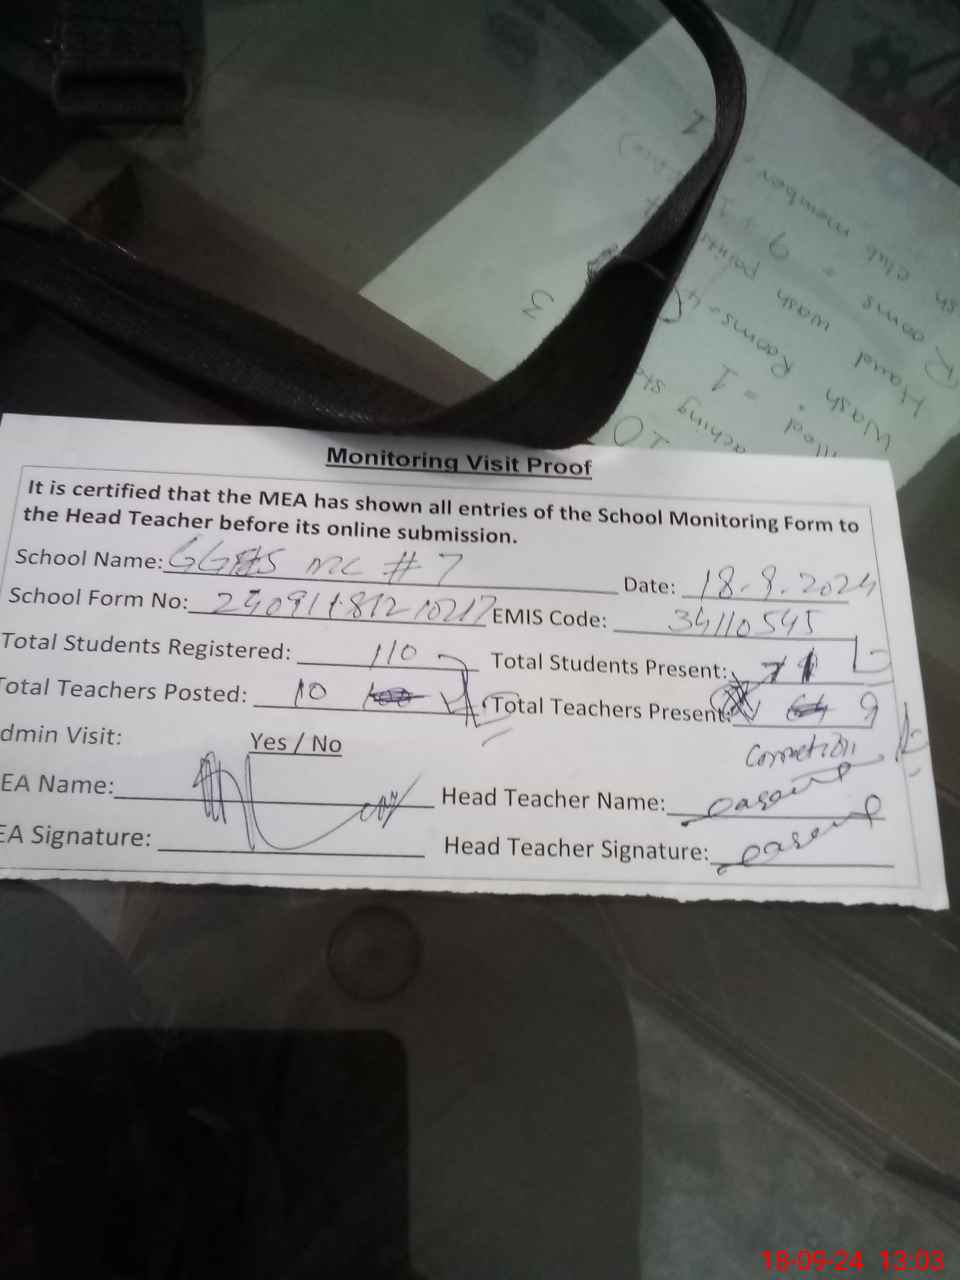 Monitoring Visit Proof
It is certified that the MEA has shown all entries of the School Monitoring Form to
the Head Teacher before its online submission.
School Name: MC # 7
Date: 18.9.2024
School Form No:
EMIS Code: 34110545
Total Students Registered: 110
Total Students Present: 71
Total Teachers Posted: 10
Total Teachers Present: 9
dmin Visit: Yes / No
Correction
EA Name:
Head Teacher Name:
EA Signature:
Head Teacher Signature:
club member
Rooms = 9
Hand wash points
Wash Rooms = 4
= 1
10
3
18-09-24 13:03